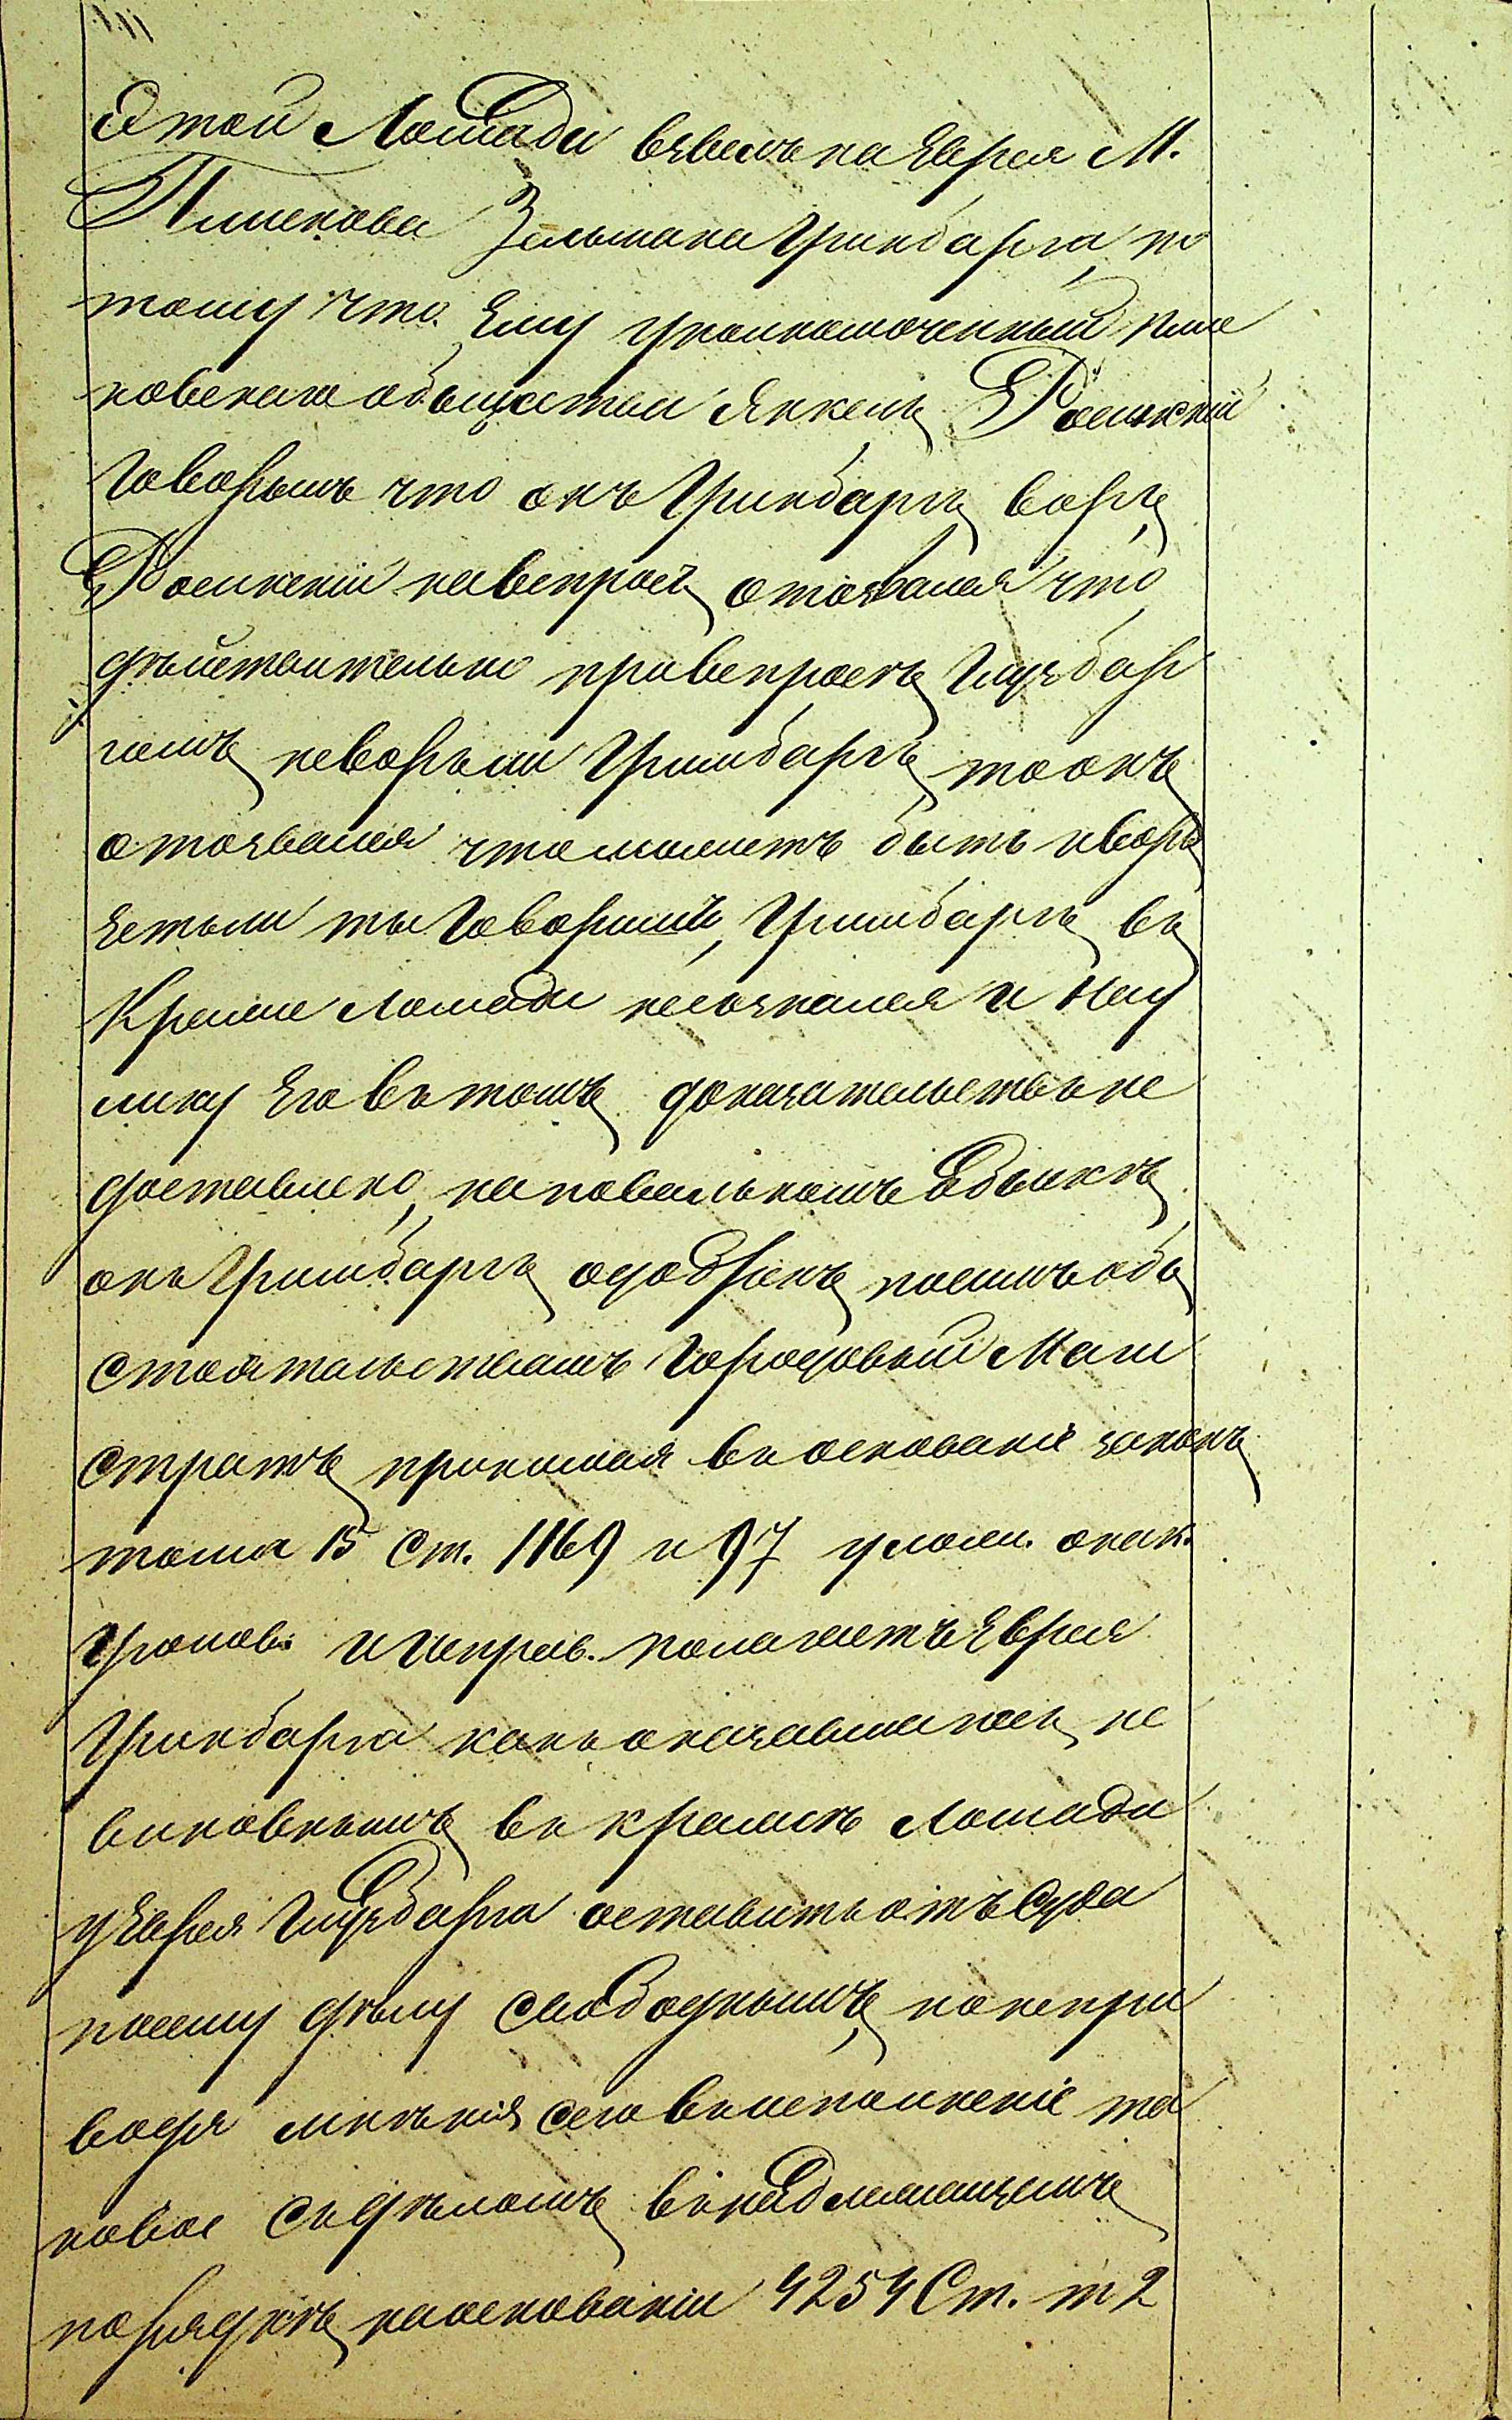 этой Лошади взвелъ на Еврея М.
Пинскова Зельмана Гринбарга, по
тому что Ему уполномоченный пин
ковскаго общества Янкель Рольскій
Говорилъ что онъ Гринбаргъ воръ,
Рольскій на вспросъ отозвался что
дѣйствительно при вспросѣ Глузбар
гомъ не воръ ли Гринбаргъ, то онъ
отозвался что можетъ быть и воръ
естьли ты Говоришъ, Гринбаргъ въ
Кражѣ Лошади несознался и на у
лику Его въ томъ доказательствъ не
доставлено, на повальномъ Обыскѣ
онъ Гринбаргъ одобренъ, по симъ об
стоятельствамъ Городовый Маги
стратъ принимая въ основаніе законъ
тома 15 Ст. 1169 и 97 улож. о нак.
Уголов. и исправ. полагаетъ Еврея
Гринбарга какъ оказавшагося не
виновнымъ въ кражѣ Лошади
у Еврея Глузбарга оставить отъ Суда
по сему дѣлу свободнымъ, но не при
водя мнѣнія сего въ исполненіе та
ковое съ дѣломъ въ надлежащемъ
порядкѣ на основаніи 4254 Ст. т 2